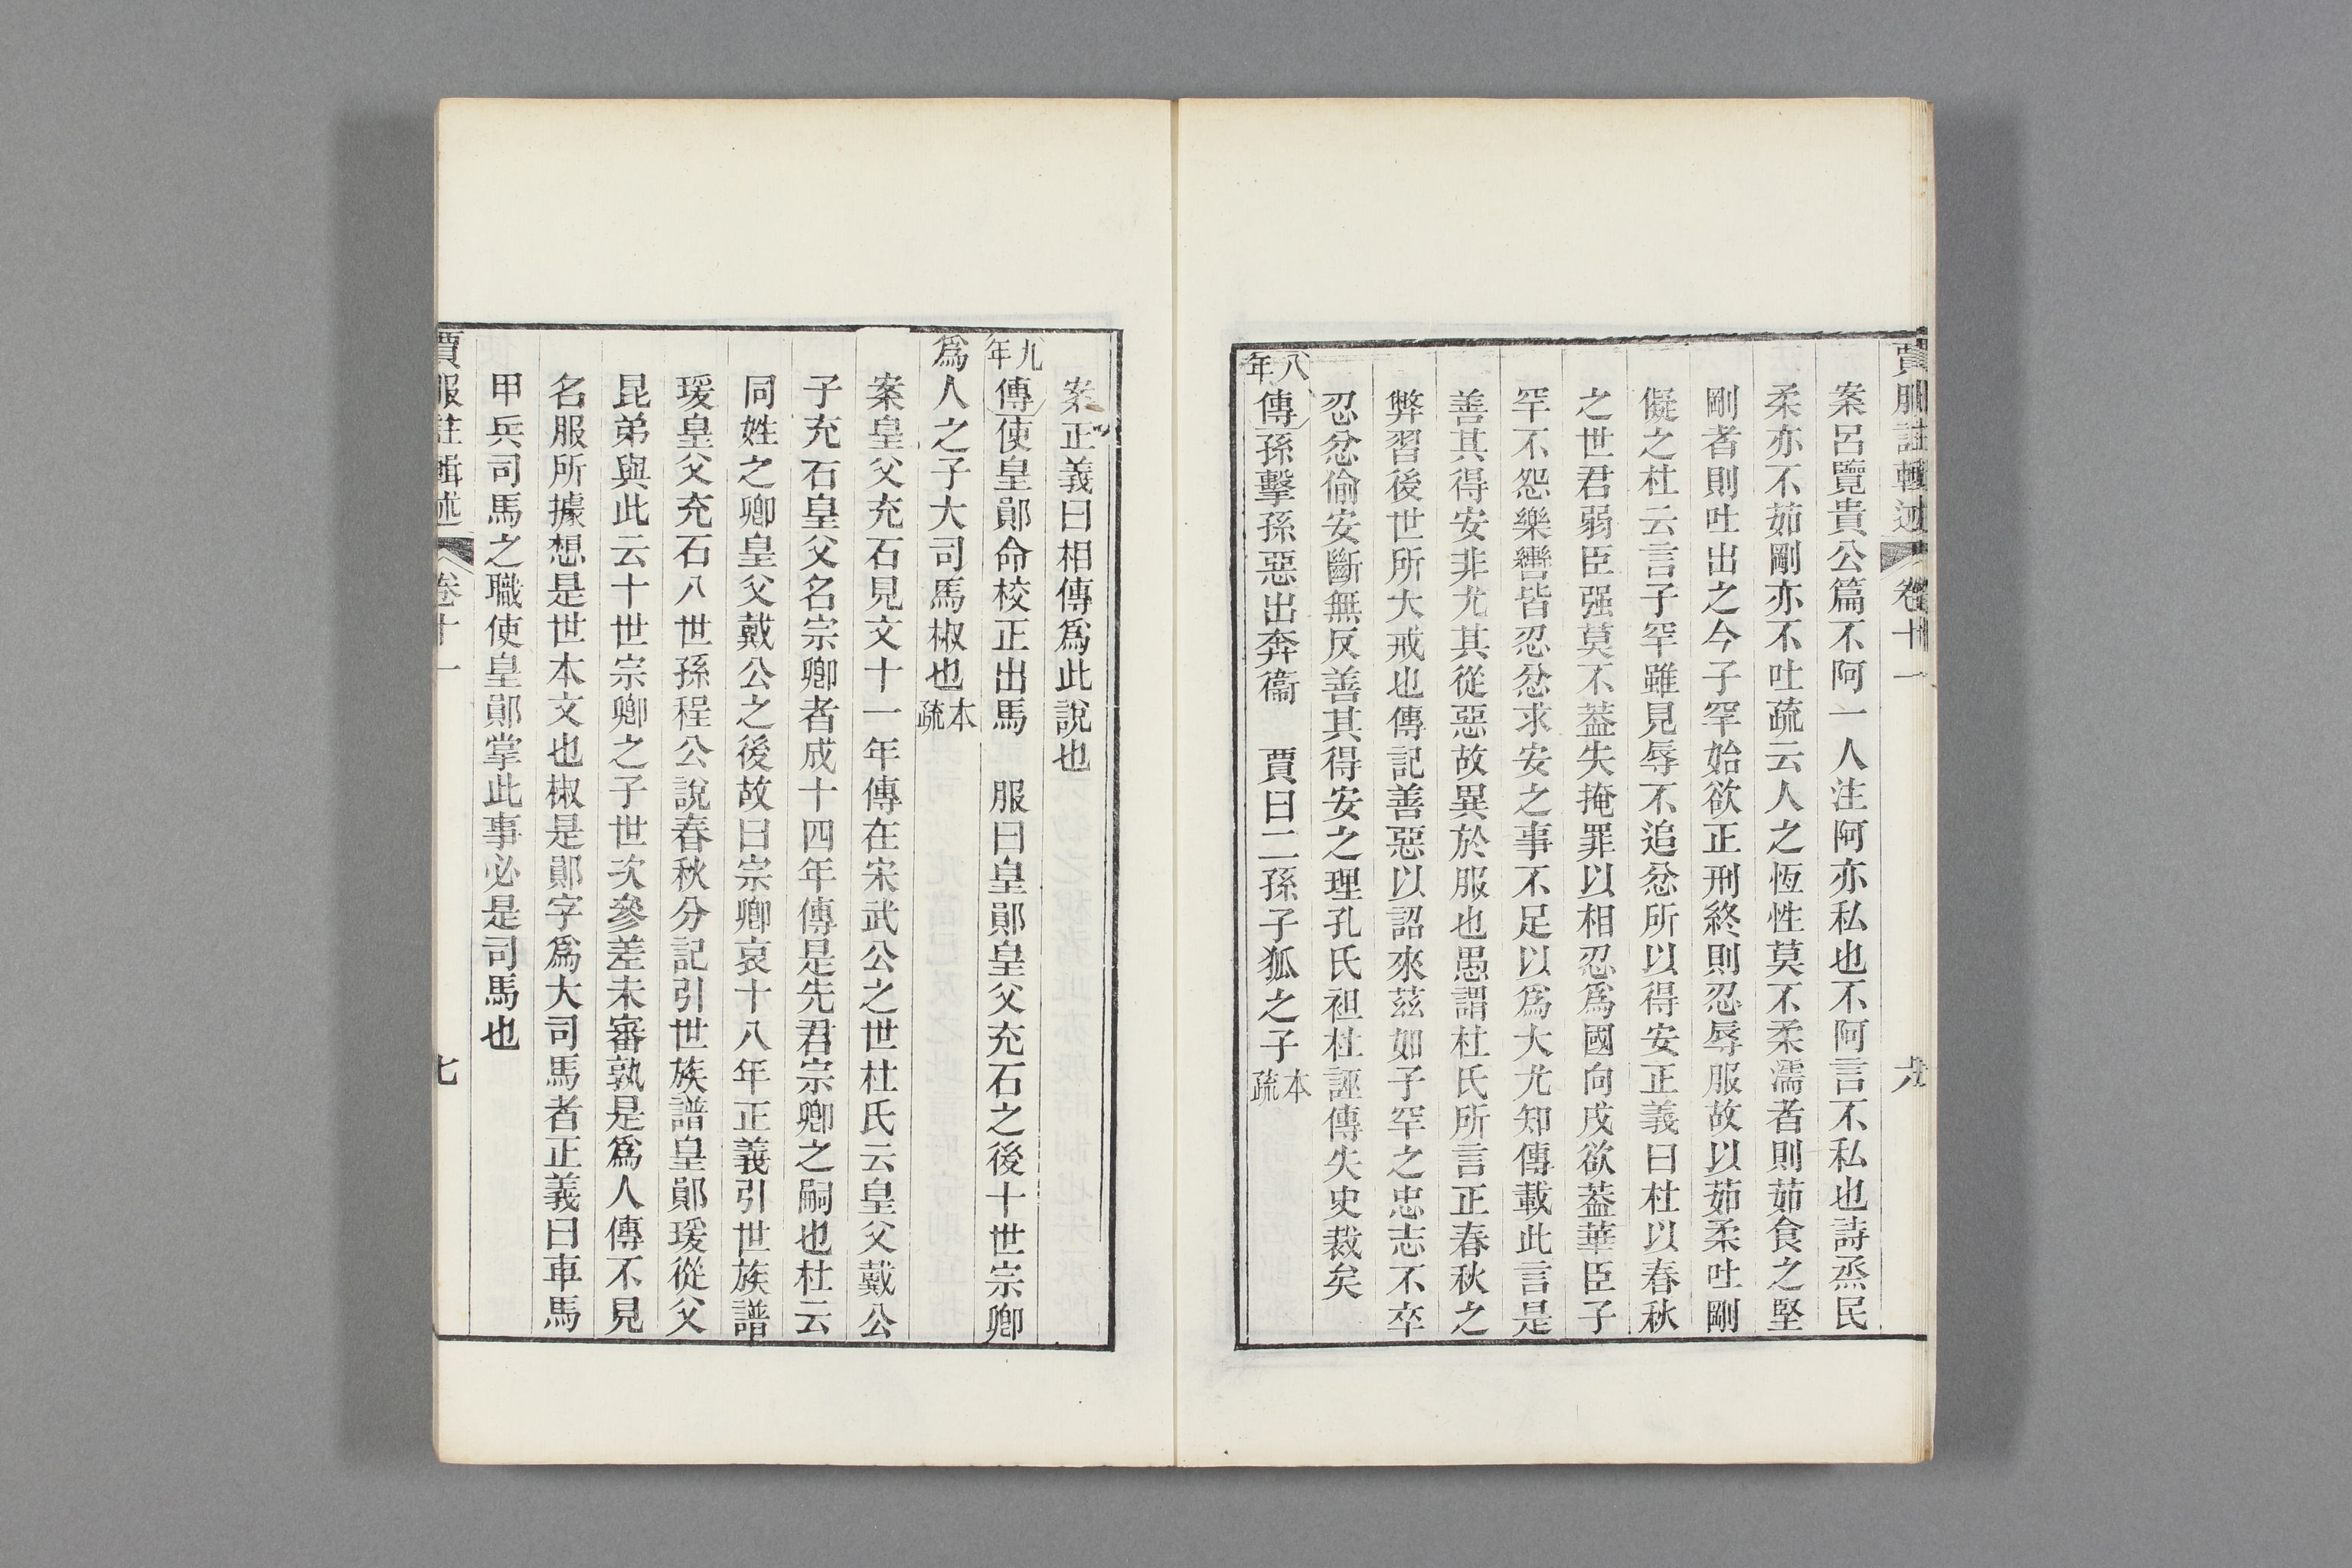 賈服註輯述 卷十一 六
案呂覽貴公篇不阿一人注阿亦私也不阿言不私也詩烝民
柔亦不茹剛亦不吐疏云人之恆性莫不柔濡者則茹食之堅
剛者則吐出之今子罕始欲正刑終則忍辱服故以茹柔吐剛
儗之杜云言子罕雖見辱不追忿所以得安正義曰杜以春秋
之世君弱臣强莫不葢失掩罪以相忍爲國向戌欲葢華臣子
罕不怨樂轡皆忍忿求安之事不足以爲大尤知傳載此言是
善其得安非尤其從惡故異於服也愚謂杜氏所言正春秋之
弊習後世所大戒也傳記善惡以詔來茲如子罕之忠志不卒
忍忿偷安斷無反善其得安之理孔氏袒杜誣傳失史裁矣
八年傳孫擊孫惡出奔衞 賈曰二孫子狐之子本疏
案正義曰相傳爲此說也
九年傳使皇鄖命校正出馬 服曰皇鄖皇父充石之後十世宗卿
爲人之子大司馬椒也本疏
案皇父充石見文十一年傳在宋武公之世杜氏云皇父戴公
子充石皇父名宗卿者成十四年傳是先君宗卿之嗣也杜云
同姓之卿皇父戴公之後故曰宗卿哀十八年正義引世族譜
瑗皇父充石八世孫程公說春秋分記引世族譜皇鄖瑗從父
昆弟與此云十世宗卿之子世次參差未審孰是爲人傳不見
名服所據想是世本文也椒是鄖字爲大司馬者正義曰車馬
甲兵司馬之職使皇鄖掌此事必是司馬也
賈服註輯述 卷十一 七